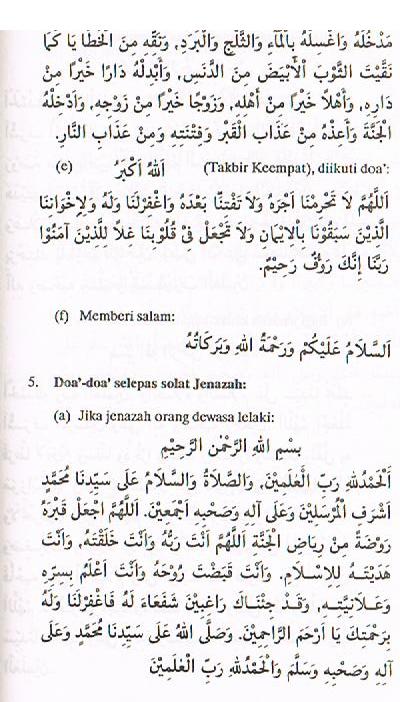 مَدْخَلَهُ وَاغْسِلْهُ بِالْمَآءِ وَالثَّلْجِ وَالْبَرَدِ, وَنَقِّهِ مِنَ الْخَطَا يَا كَمَا
نَقَّيْتَ الثَّوْبَ الْأَبْيَضَ مِنَ الدَّنَسِ, وَاَبْدِلْهُ دَارًا خَيْرًا مِنْ
دَارِهِ, وَاَهْلًا خَيْرًا مِنْ اَهْلِهِ, وَزَوْجًا خَيْرًا مِنْ زَوْجِهِ, وَادْخِلْهُ
الْجَنَّةَ وَاَعِذْهُ مِنْ عَذَابِ الْقَبْرِ وَفِتْنَتِهِ وَمِنْ عَذَابِ النَّارِ.
(e) اَللهُ اَكْبَرُ (Takbir Keempat), diikuti doa':
اَللّٰهُمَّ لَا تَحْرِمْنَا اَجْرَهُ وَلَا تَفْتِنَّا بَعْدَهُ وَاغْفِرْلَنَا وَلَهُ وَلِاِخْوَانِنَا
الَّذِيْنَ سَبَقُوْنَا بِالْاِيْمَانِ وَلَا تَجْعَلْ فِيْ قُلُوْبِنَا غِلًا لِلَّذِيْنَ آمَنُوْا
رَبَّنَا اِنَّكَ رَؤُفٌ رَحِيْمٌ.
(f) Memberi salam:
اَلسَّلَامُ عَلَيْكُمْ وَرَحْمَةُ اللهِ وَبَرَكَاتُهُ
5. Doa'-doa' selepas solat Jenazah:
(a) Jika jenazah orang dewasa lelaki:
بِسْمِ اللهِ الرَّحْمٰنِ الرَّحِيْمِ
اَلْحَمْدُلِلهِ رَبِّ الْعٰلَمِيْنَ, وَالصَّلَاةُ وَالسَّلَامُ عَلَى سَيِّدِنَا مُحَمَّدٍ
اَشْرَفِ الْمُرْسَلِيْنَ وَعَلَى آلِهِ وَصَحْبِهِ اَجْمَعِيْنَ. اَللّٰهُمَّ اجْعَلْ قَبْرَهُ
رَوْضَةً مِنْ رِيَاضِ الْجَنَّةِ اَللّٰهُمَّ اَنْتَ رَبُّهُ وَاَنْتَ خَلَقْتَهُ, وَاَنْتَ
هَدَيْتَهُ لِلْاِسْلَامِ. وَاَنْتَ قَبَضْتَ رُوْحَهُ وَاَنْتَ اَعْلَمُ بِسِرِّهِ
وَعَلَانِيَّتِهِ, وَقَدْ جِئْنَاكَ رَاغِبِيْنَ شَفَعَاءَ لَهُ فَاغْفِرْلَنَا وَلَهُ
بِرَحْمَتِكَ يَا اَرْحَمَ الرَّاحِمِيْنَ. وَصَلَّى اللهُ عَلَى سَيِّدِنَا مُحَمَّدٍ وَعَلَى
آلِهِ وَصَحْبِهِ وَسَلَّمَ وَالْحَمْدُلِلهِ رَبِّ الْعٰلَمِيْنَ